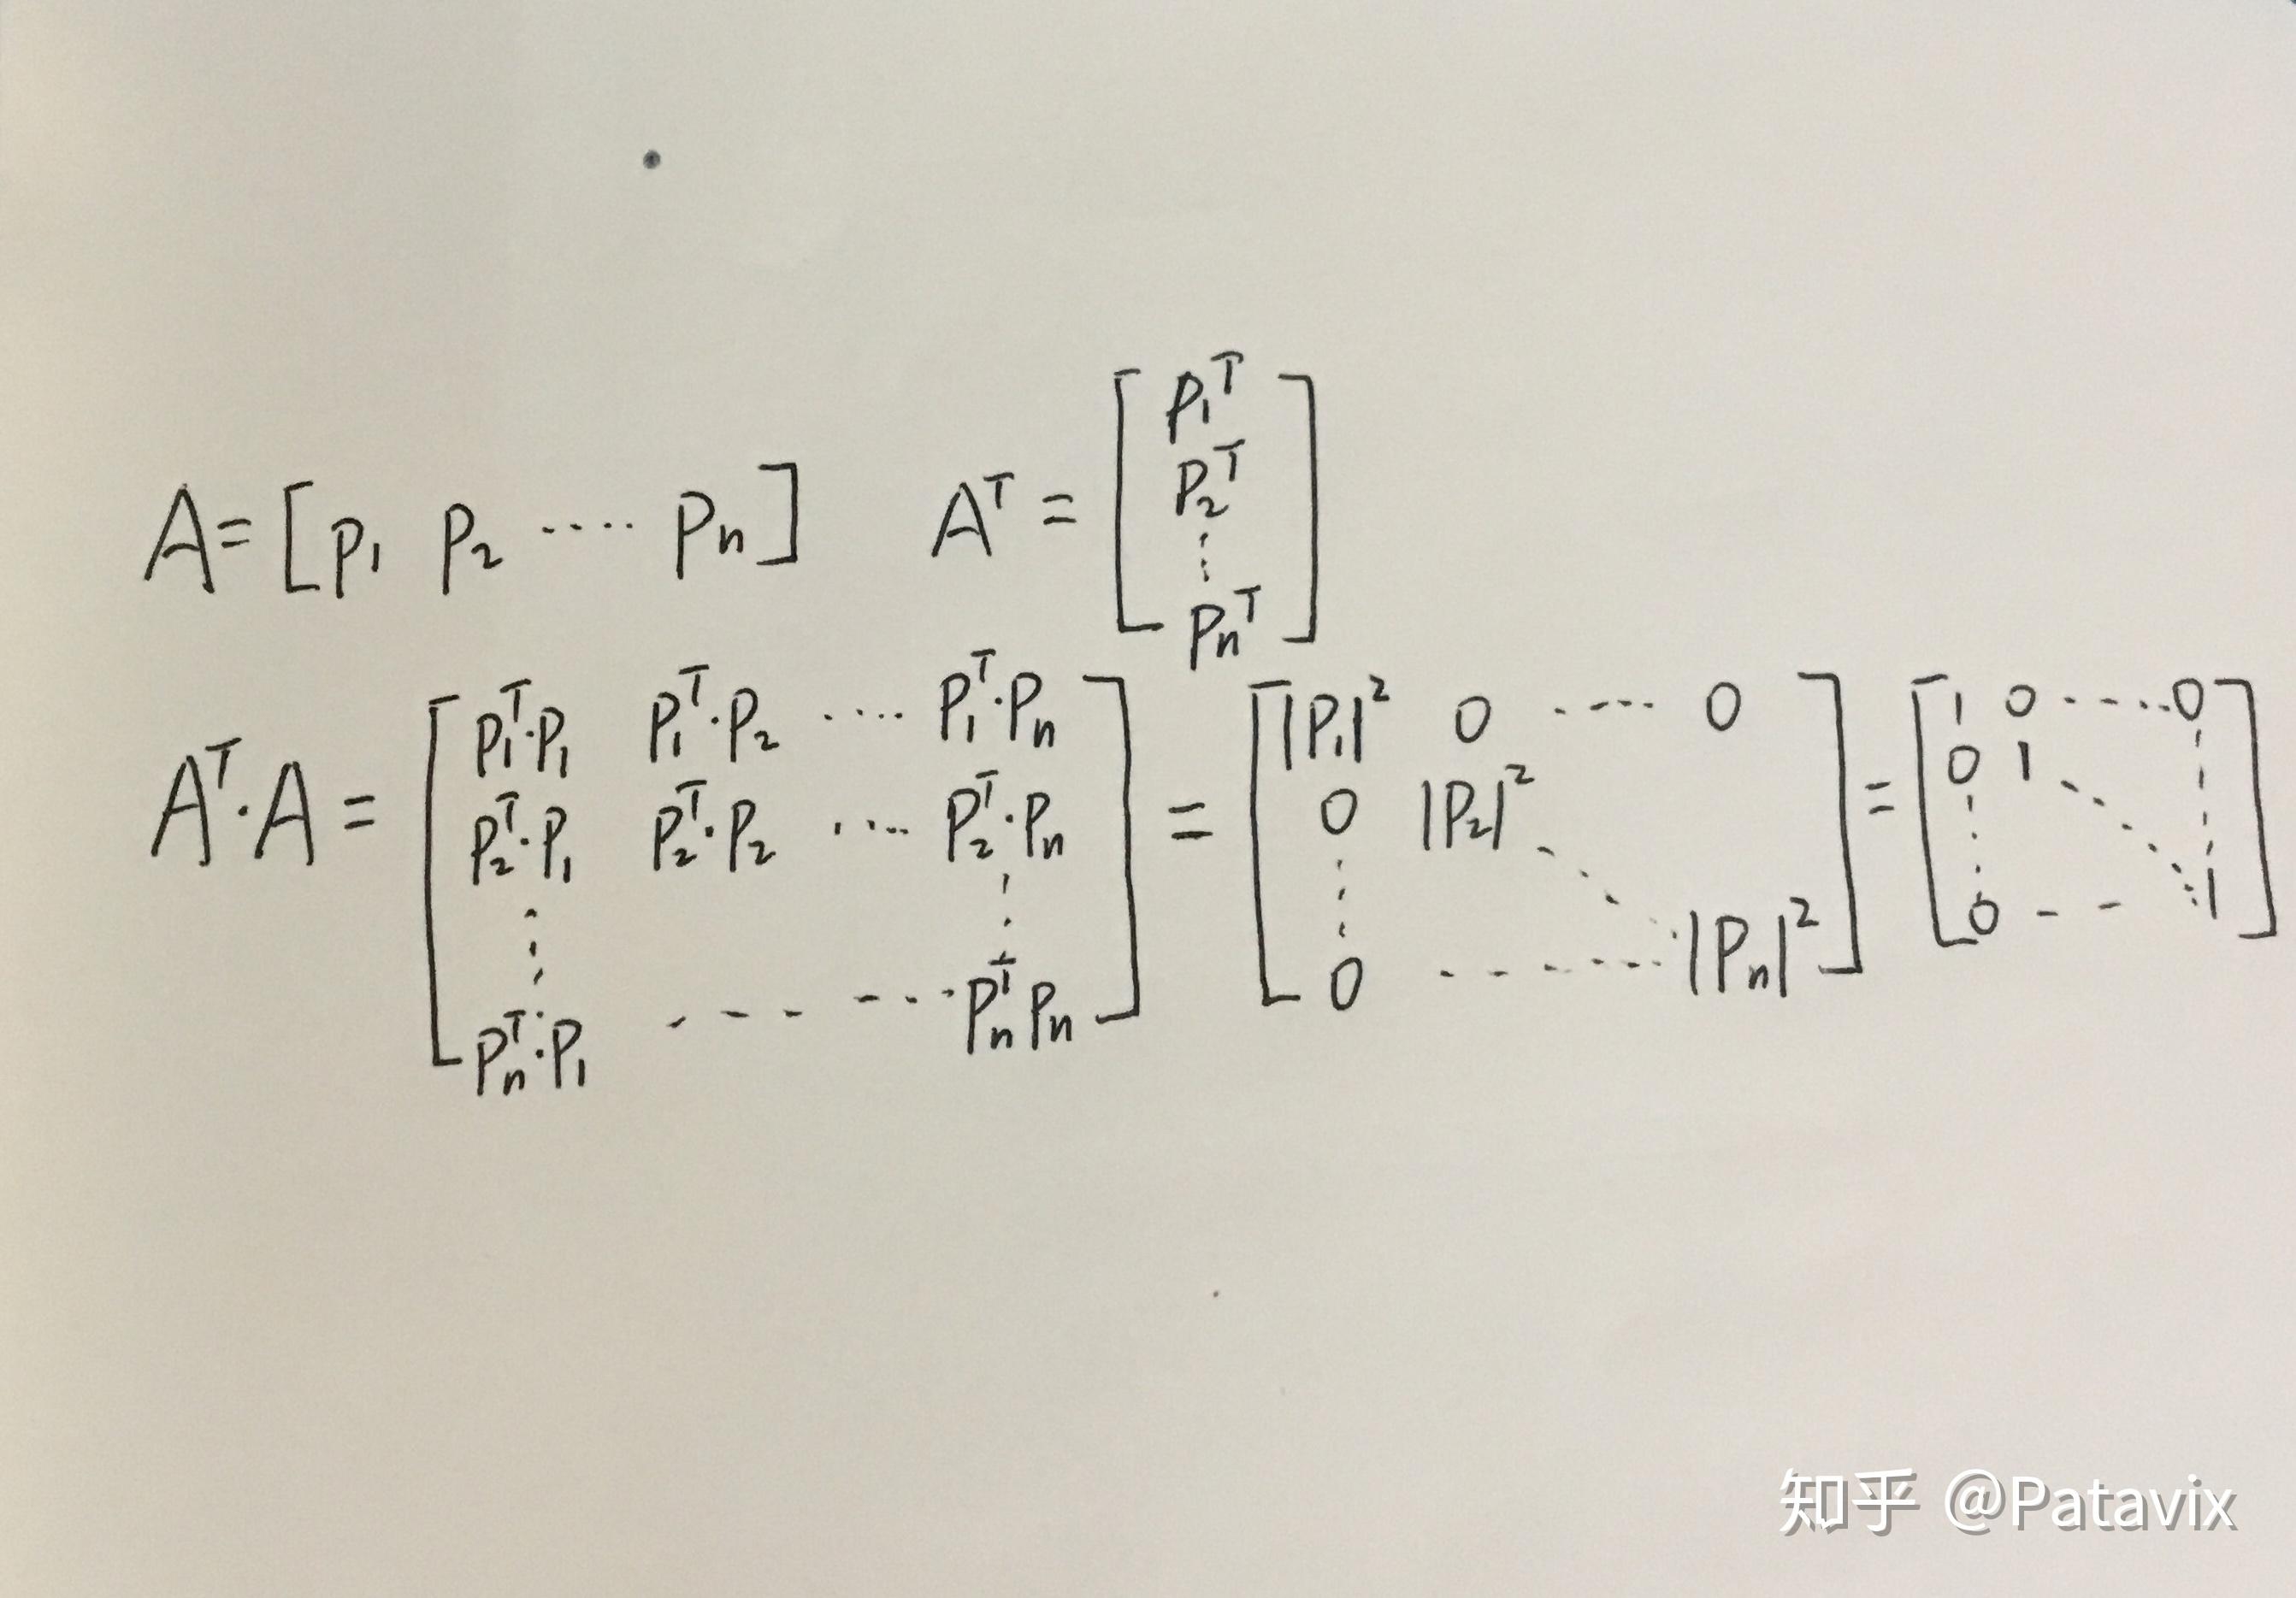 A = [p₁ p₂ ···· pₙ] Aᵀ = [p₁ᵀ; p₂ᵀ; ⋮; pₙᵀ]
Aᵀ·A = [p₁ᵀ·p₁ p₁ᵀ·p₂ ···· p₁ᵀ·pₙ; p₂ᵀ·p₁ p₂ᵀ·p₂ ···· p₂ᵀ·pₙ; ⋮ ⋮; pₙᵀ·p₁ ---- pₙᵀpₙ] = [|p₁|² 0 ···· 0; 0 |p₂|² ⋱; ⋮; 0 ······ |pₙ|²] = [1 0 ···· 0; 0 1 ⋱ ⋮; ⋮; 0 -- 1]
知乎 @Patavix